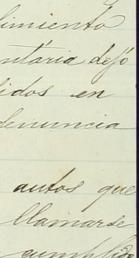 limiento
ntária dejó
idos en
denuncia
autos que
llamarse
cumplid